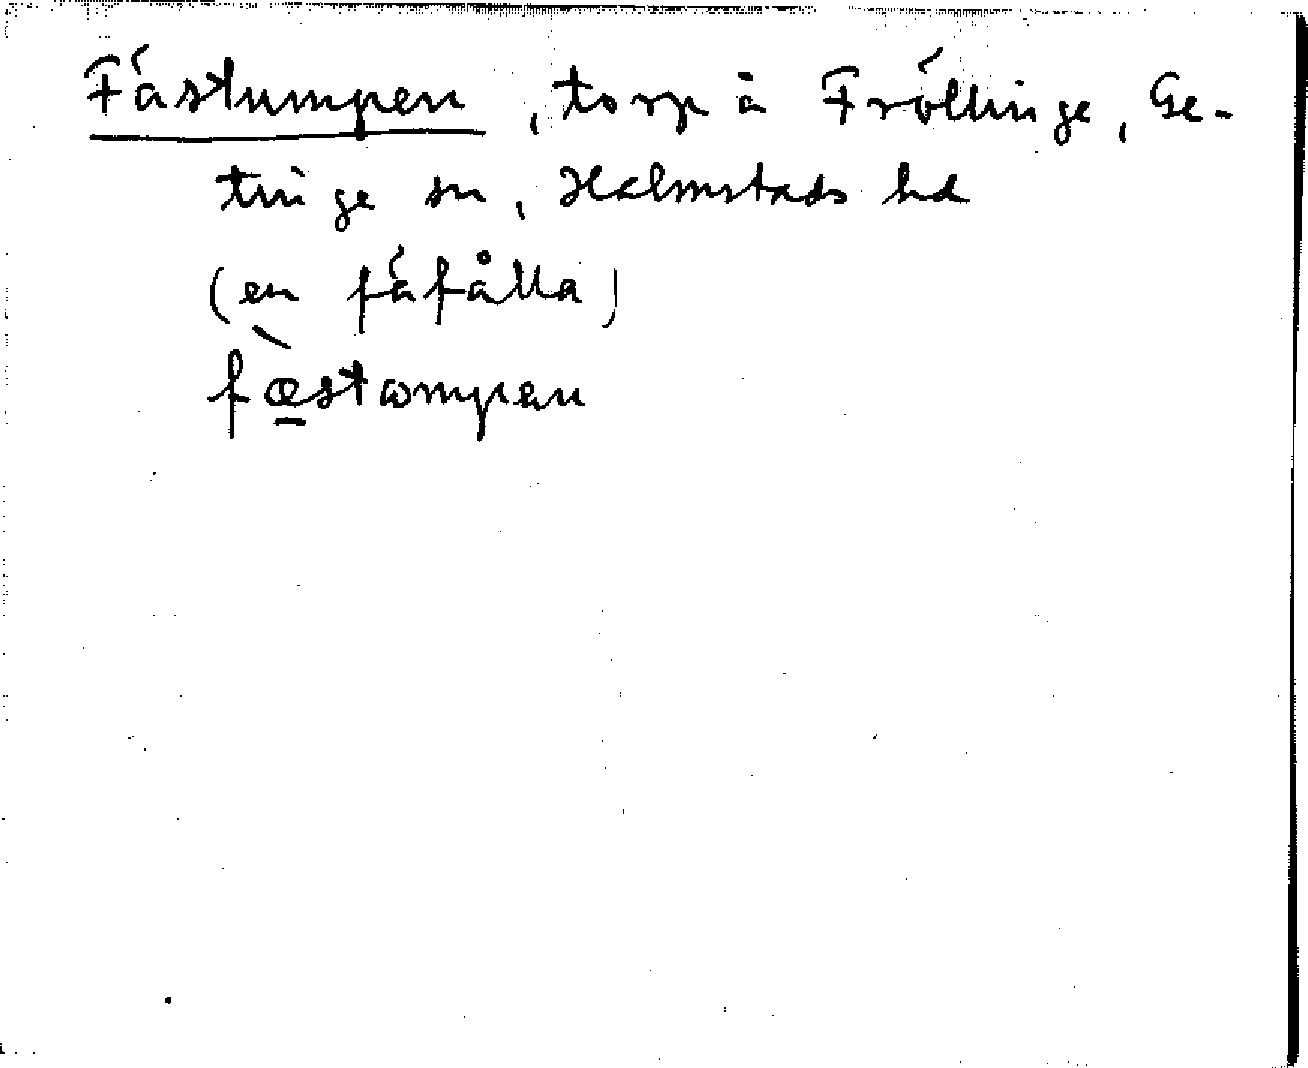 Fästumpen, torp å Fröllinge, Ge-
tinge sn, Halmstads hd
(en fäfålla)
fæ̠̀stωmpən